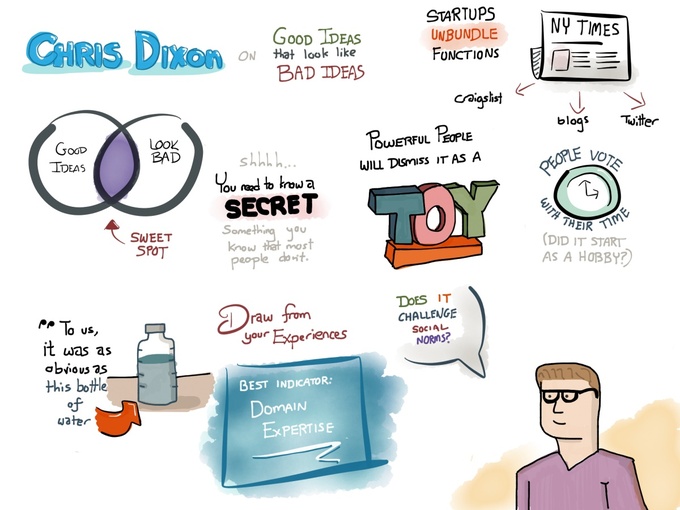 CHRIS DIXON
ON
GOOD IDEAS
that look like
BAD IDEAS
STARTUPS
UNBUNDLE
FUNCTIONS
NY TIMES
Craigslist
blogs
Twitter
GOOD
IDEAS
LOOK
BAD
SWEET
SPOT
shhhh...
You need to know a
SECRET
Something you
know that most
people don't.
POWERFUL PEOPLE
WILL DISMISS IT AS A
TOY
PEOPLE VOTE
WITH THEIR TIME
(DID IT START
AS A HOBBY?)
" To us,
it was as
obvious as
this bottle
of
water
Draw from
your Experiences
BEST INDICATOR:
DOMAIN
EXPERTISE
DOES IT
CHALLENGE
SOCIAL
NORMS?